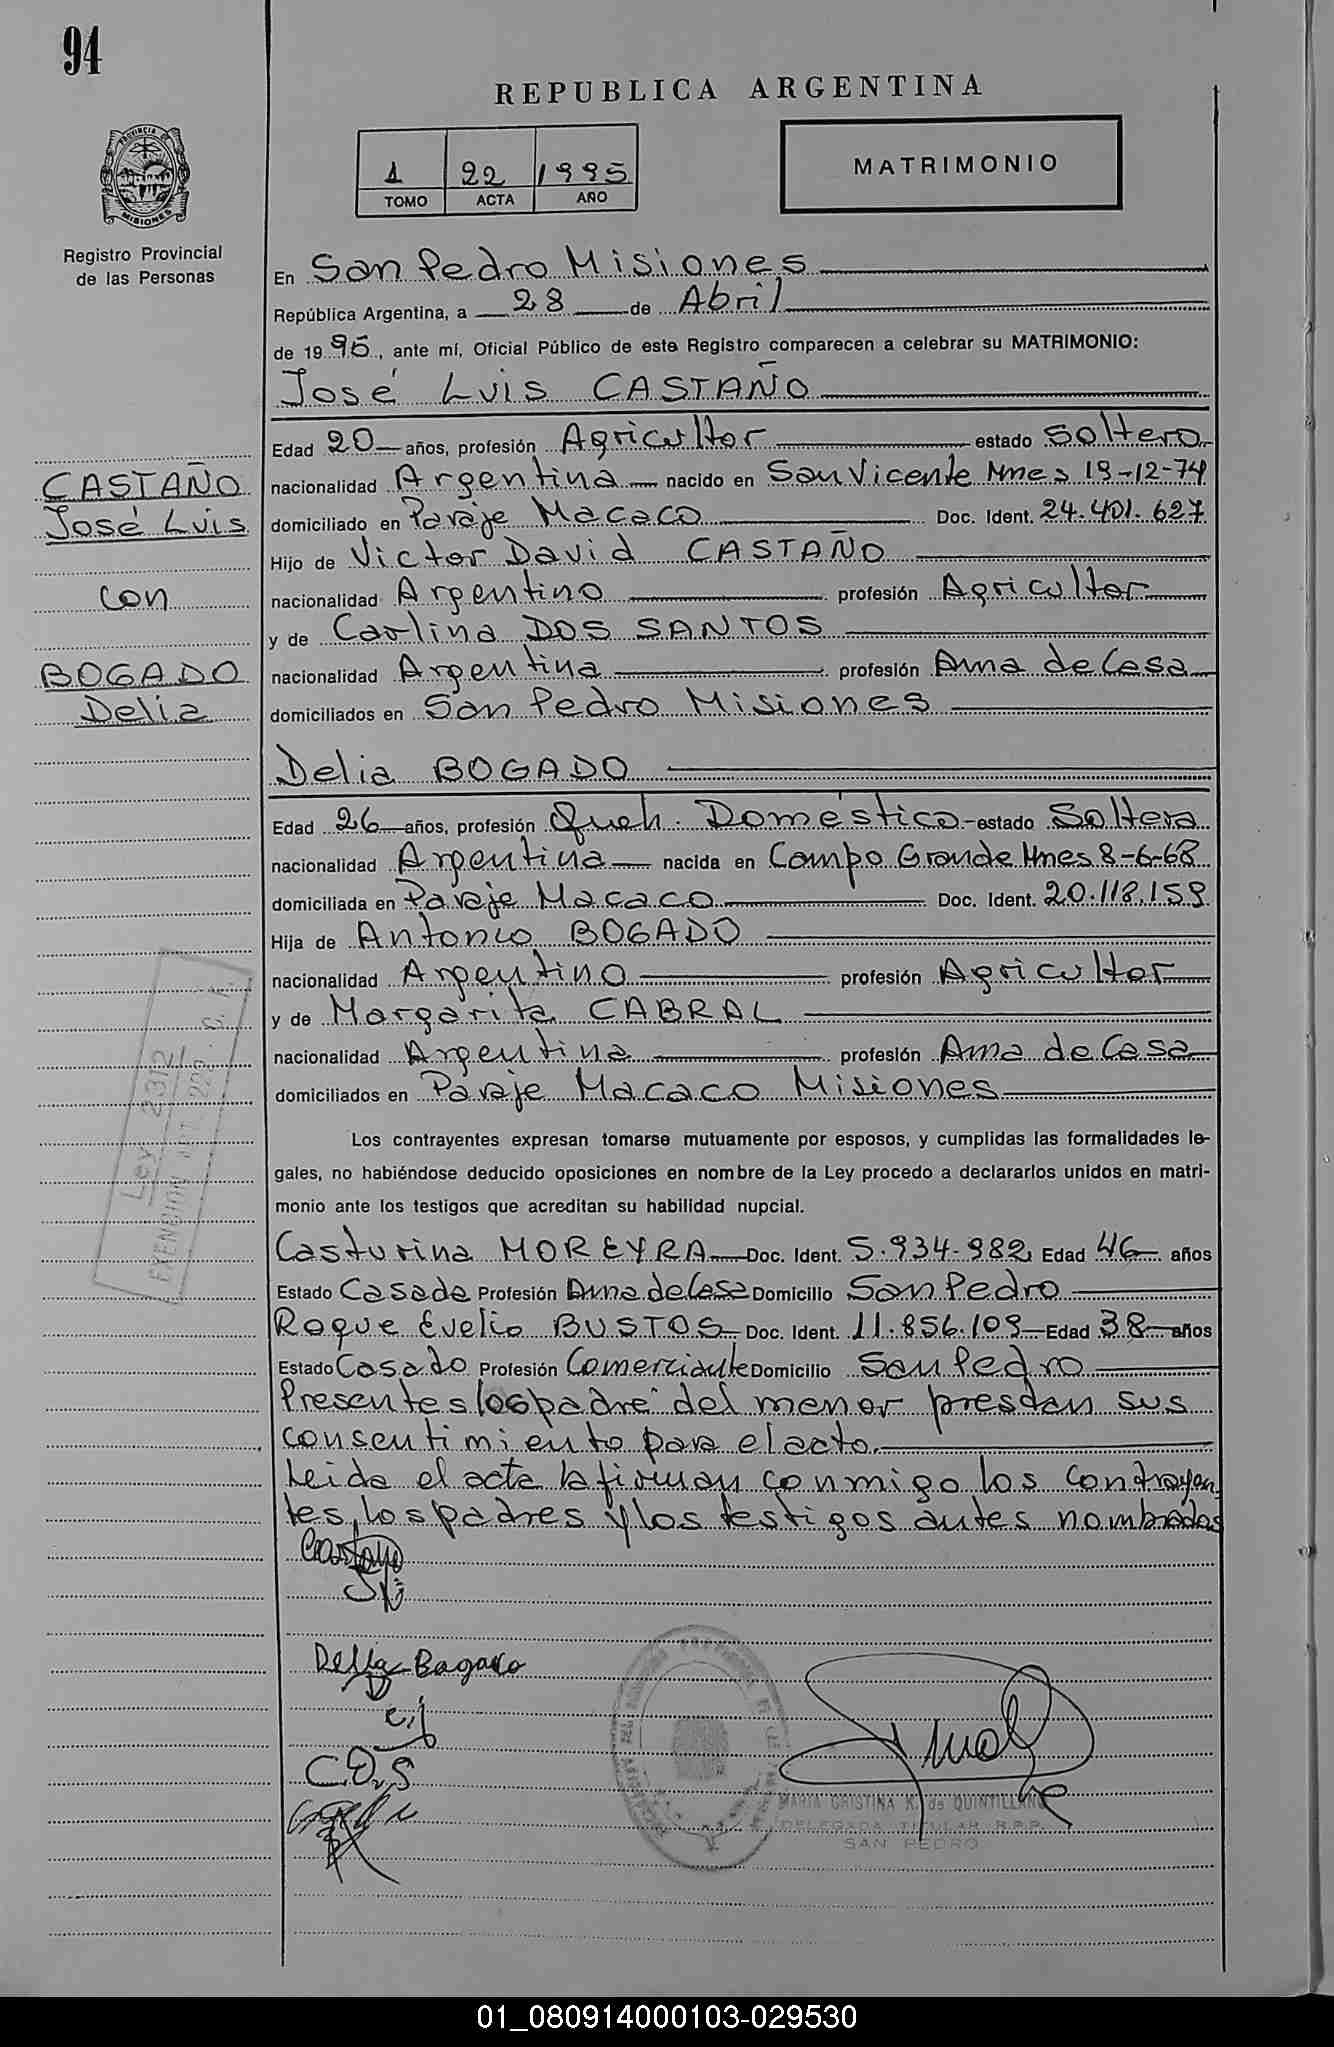 94
REPUBLICA ARGENTINA
PROVINCIA DE MISIONES
1 22 1995
TOMO ACTA AÑO
MATRIMONIO
Registro Provincial
de las Personas
En San Pedro Misiones
República Argentina, a 28 de Abril
de 1995, ante mí, Oficial Público de este Registro comparecen a celebrar su MATRIMONIO:
José Luis CASTAÑO
Edad 20 años, profesión Agricultor estado Soltero
CASTAÑO
nacionalidad Argentina nacido en San Vicente Mnes 19-12-74
José Luis
domiciliado en Paraje Macaco Doc. Ident. 24.401.627
Hijo de Victor David CASTAÑO
con
nacionalidad Argentino profesión Agricultor
y de Carlina DOS SANTOS
BOGADO
nacionalidad Argentina profesión Ama de Casa
Delia
domiciliados en San Pedro Misiones
Delia BOGADO
Edad 26 años, profesión Queh. Doméstico estado Soltera
nacionalidad Argentina nacida en Campo Grande Mnes 8-6-68
domiciliada en Paraje Macaco Doc. Ident. 20.118.159
Hija de Antonio BOGADO
nacionalidad Argentino profesión Agricultor
y de Margarita CABRAL
nacionalidad Argentina profesión Ama de Casa
domiciliados en Paraje Macaco Misiones
Ley 2312
EXENCION ART. 222
Los contrayentes expresan tomarse mutuamente por esposos, y cumplidas las formalidades le-
gales, no habiéndose deducido oposiciones en nombre de la Ley procedo a declararlos unidos en matri-
monio ante los testigos que acreditan su habilidad nupcial.
Casturina MOREYRA Doc. Ident. 5.934.982 Edad 46 años
Estado Casada Profesión Ama de Casa Domicilio San Pedro
Roque Evelio BUSTOS Doc. Ident. 11.856.109 Edad 38 años
Estado Casado Profesión Comerciante Domicilio San Pedro
Presentes los padre del menor prestan sus
consentimiento para el acto.
Leida el acta la firman conmigo los contrayen
tes, los padres y los testigos antes nombrados
Castaño
Delia Bogado
C.D.S
MARIA CRISTINA K. de QUINTILLANO
DELEGADA TITULAR R.P.P.
SAN PEDRO
01_080914000103-029530